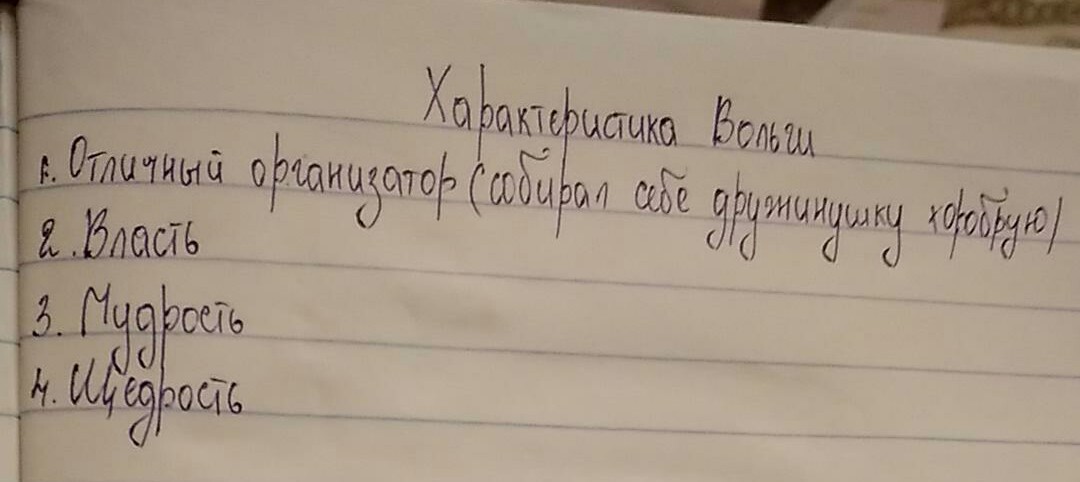 Характеристика Вольги
1. Отличный организатор (собирал себе дружинушку хоробрую)
2. Власть
3. Мудрость
4. Щедрость